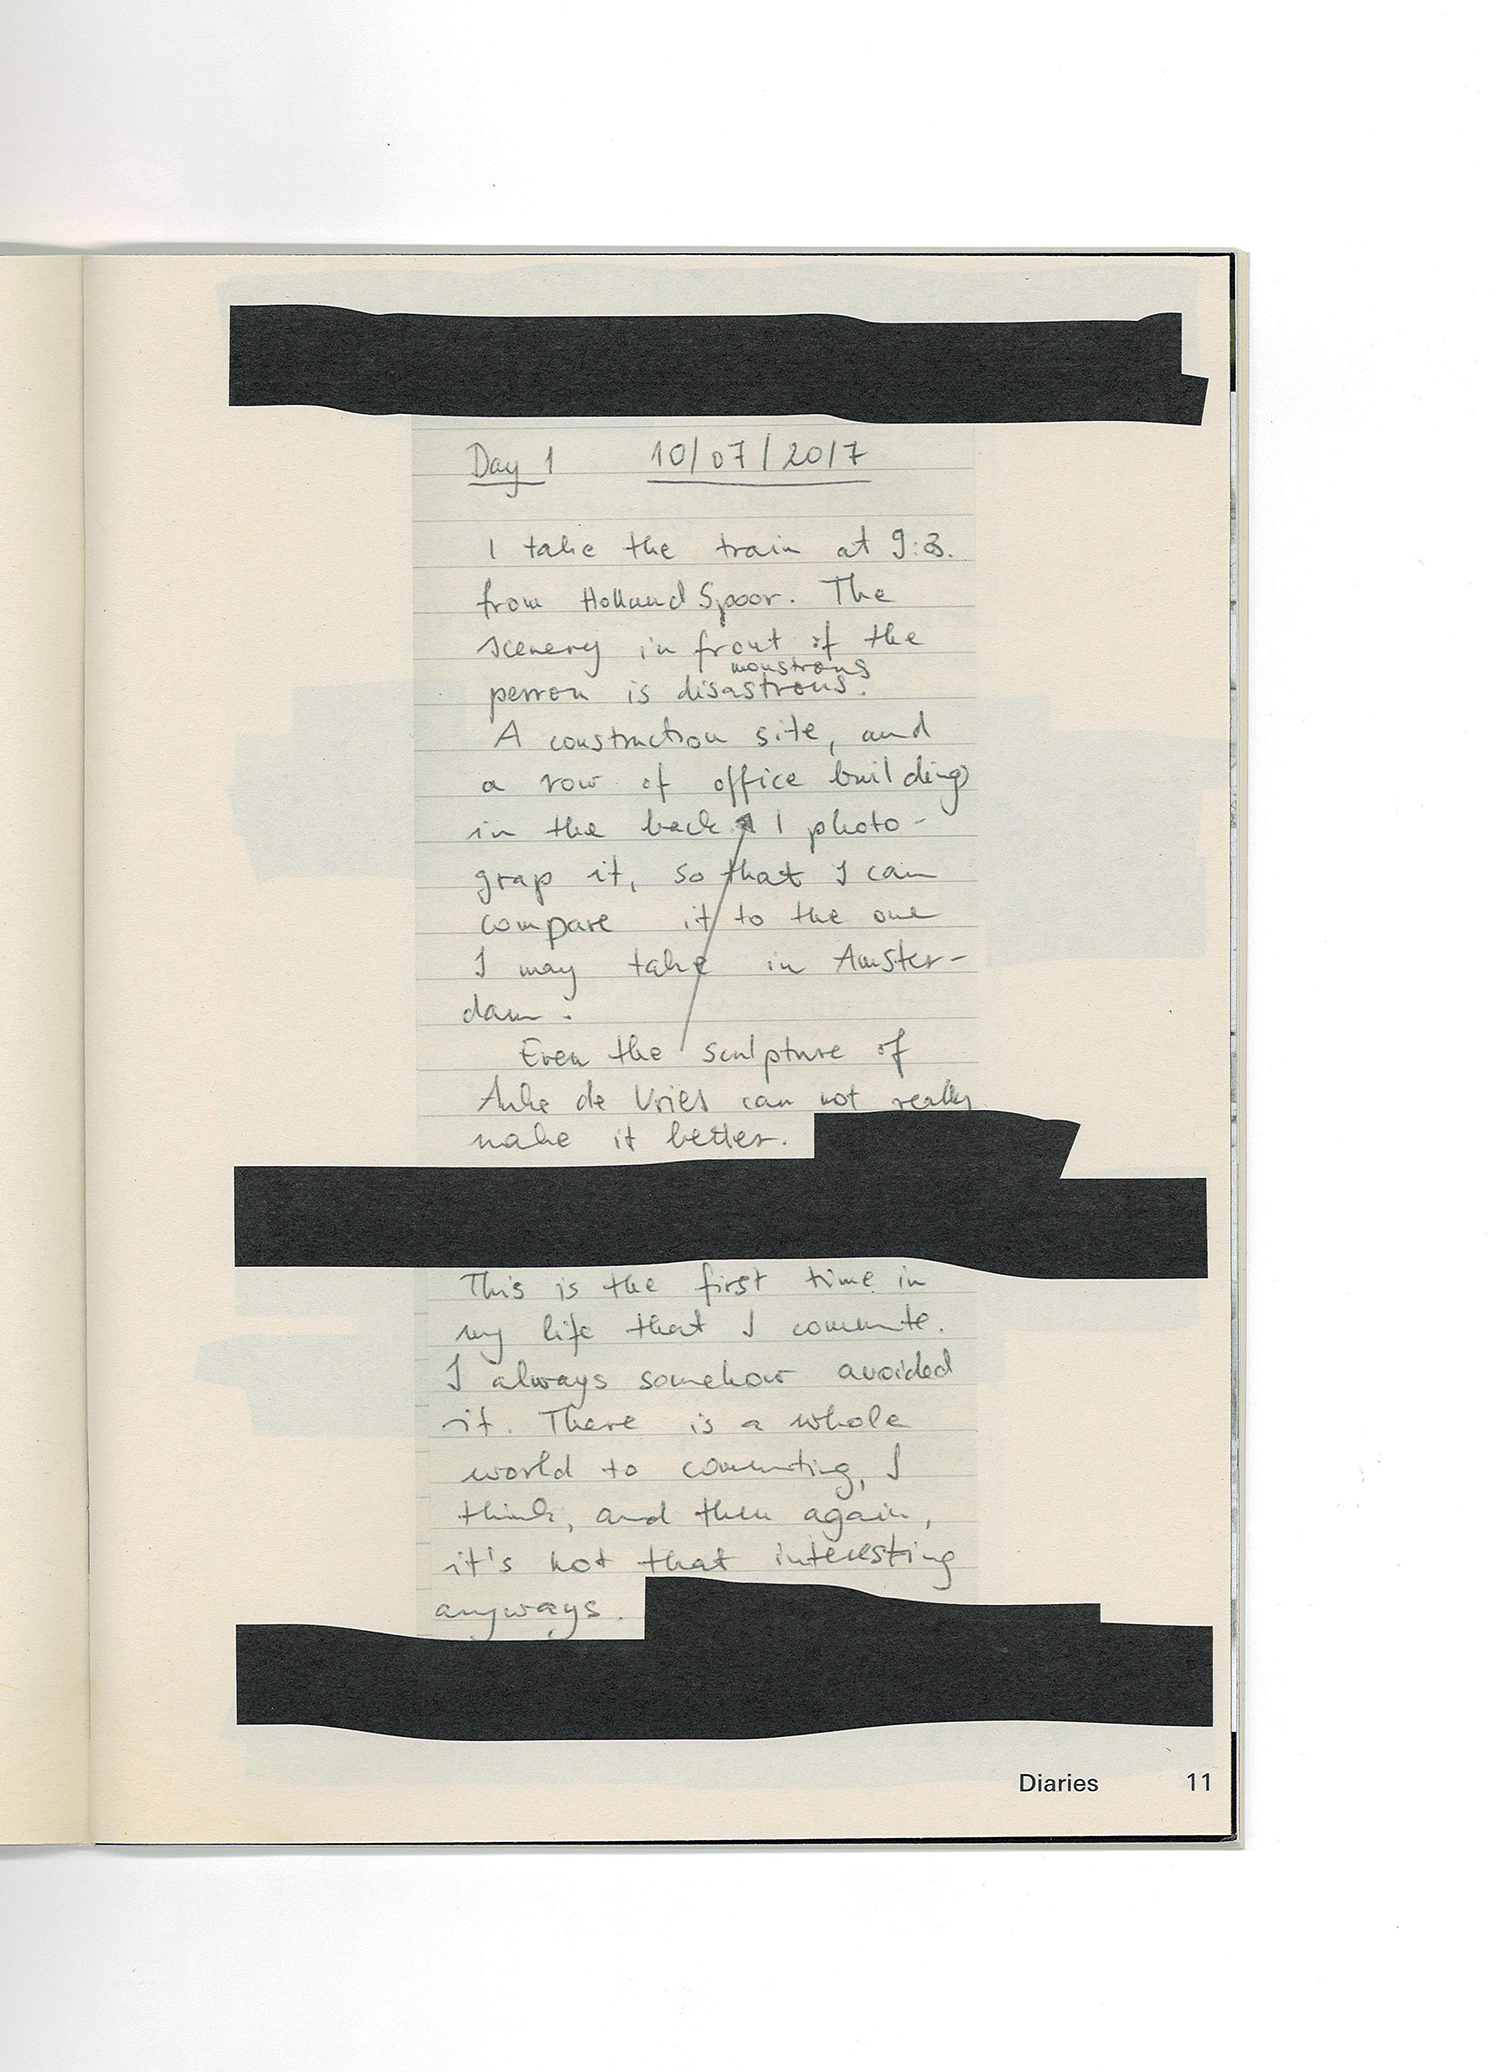 Day 1 10/07/2017
I take the train at
from Holland Spoor. The
scenery in front of the
monstrous
perron is disastrous.
A construction site, and
a row of office buildings
in the back I photo-
grap it, so that I can
compare it to the one
I may take in Amster-
dam.
Even the sculpture of
Auke de Vries can not really
make it better.
This is the first time in
my life that I commute.
I always somehow avoided
it. There is a whole
world to commuting, I
think, and then again,
it's not that interesting
anyways.
Diaries 11